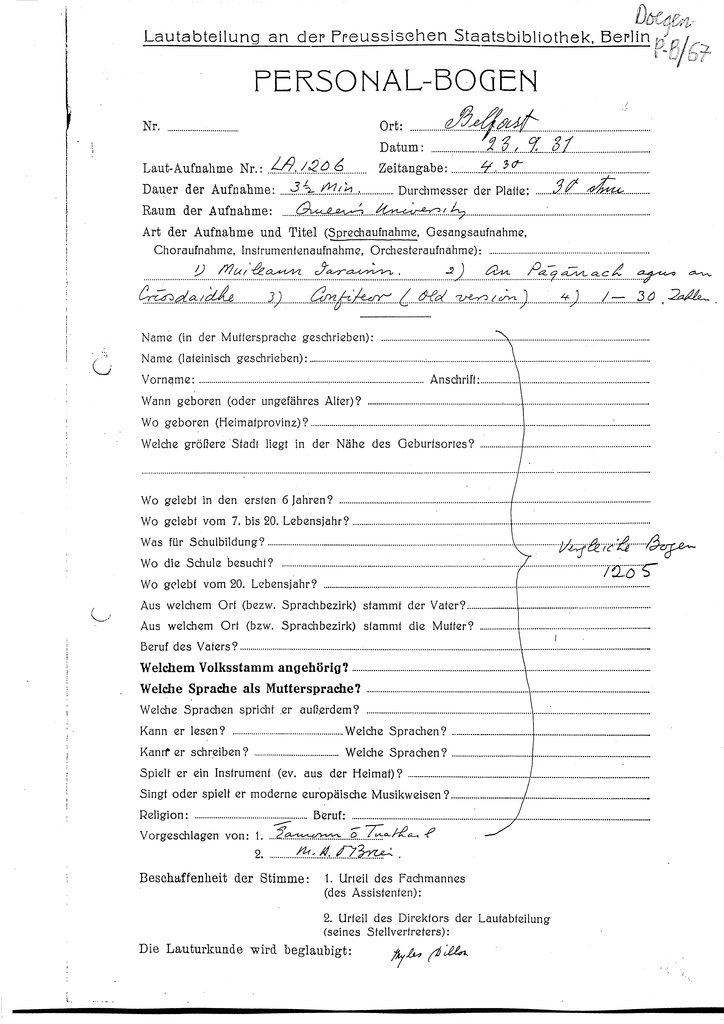 Doegen
P-B/67
Lautabteilung an der Preussischen Staatsbibliothek, Berlin
PERSONAL-BOGEN
Nr. Ort: Belfast
Datum: 23. 9. 31
Laut-Aufnahme Nr.: LA.1206 Zeitangabe: 4.30
Dauer der Aufnahme: 3½ Min. Durchmesser der Platte: 30
Raum der Aufnahme: Queen's University
Art der Aufnahme und Titel (Sprechaufnahme, Gesangsaufnahme,
Choraufnahme, Instrumentenaufnahme, Orchesteraufnahme):
1) Muileann Iarainn. 2) An Págánach agus an
Críosdaidhe 3) Confiteor (Old version) 4) 1-30. Zahlen.
Name (in der Muttersprache geschrieben):
Name (lateinisch geschrieben):
Vorname: Anschrift:
Wann geboren (oder ungefähres Alter)?
Wo geboren (Heimatprovinz)?
Welche größere Stadt liegt in der Nähe des Geburtsortes?
Wo gelebt in den ersten 6 Jahren?
Wo gelebt vom 7. bis 20. Lebensjahr?
Was für Schulbildung?
Vergleiche Bogen
Wo die Schule besucht?
1205
Wo gelebt vom 20. Lebensjahr?
Aus welchem Ort (bezw. Sprachbezirk) stammt der Vater?
Aus welchem Ort (bzw. Sprachbezirk) stammt die Mutter?
Beruf des Vaters?
Welchem Volksstamm angehörig?
Welche Sprache als Muttersprache?
Welche Sprachen spricht er außerdem?
Kann er lesen? Welche Sprachen?
Kann er schreiben? Welche Sprachen?
Spielt er ein Instrument (ev. aus der Heimat)?
Singt oder spielt er moderne europäische Musikweisen?
Religion: Beruf:
Vorgeschlagen von: 1. Éamonn ó Tuathail
2. M. A. O'Brien.
Beschaffenheit der Stimme: 1. Urteil des Fachmannes
(des Assistenten):
2. Urteil des Direktors der Lautabteilung
(seines Stellvertreters):
Die Lauturkunde wird beglaubigt: Myles Dillon